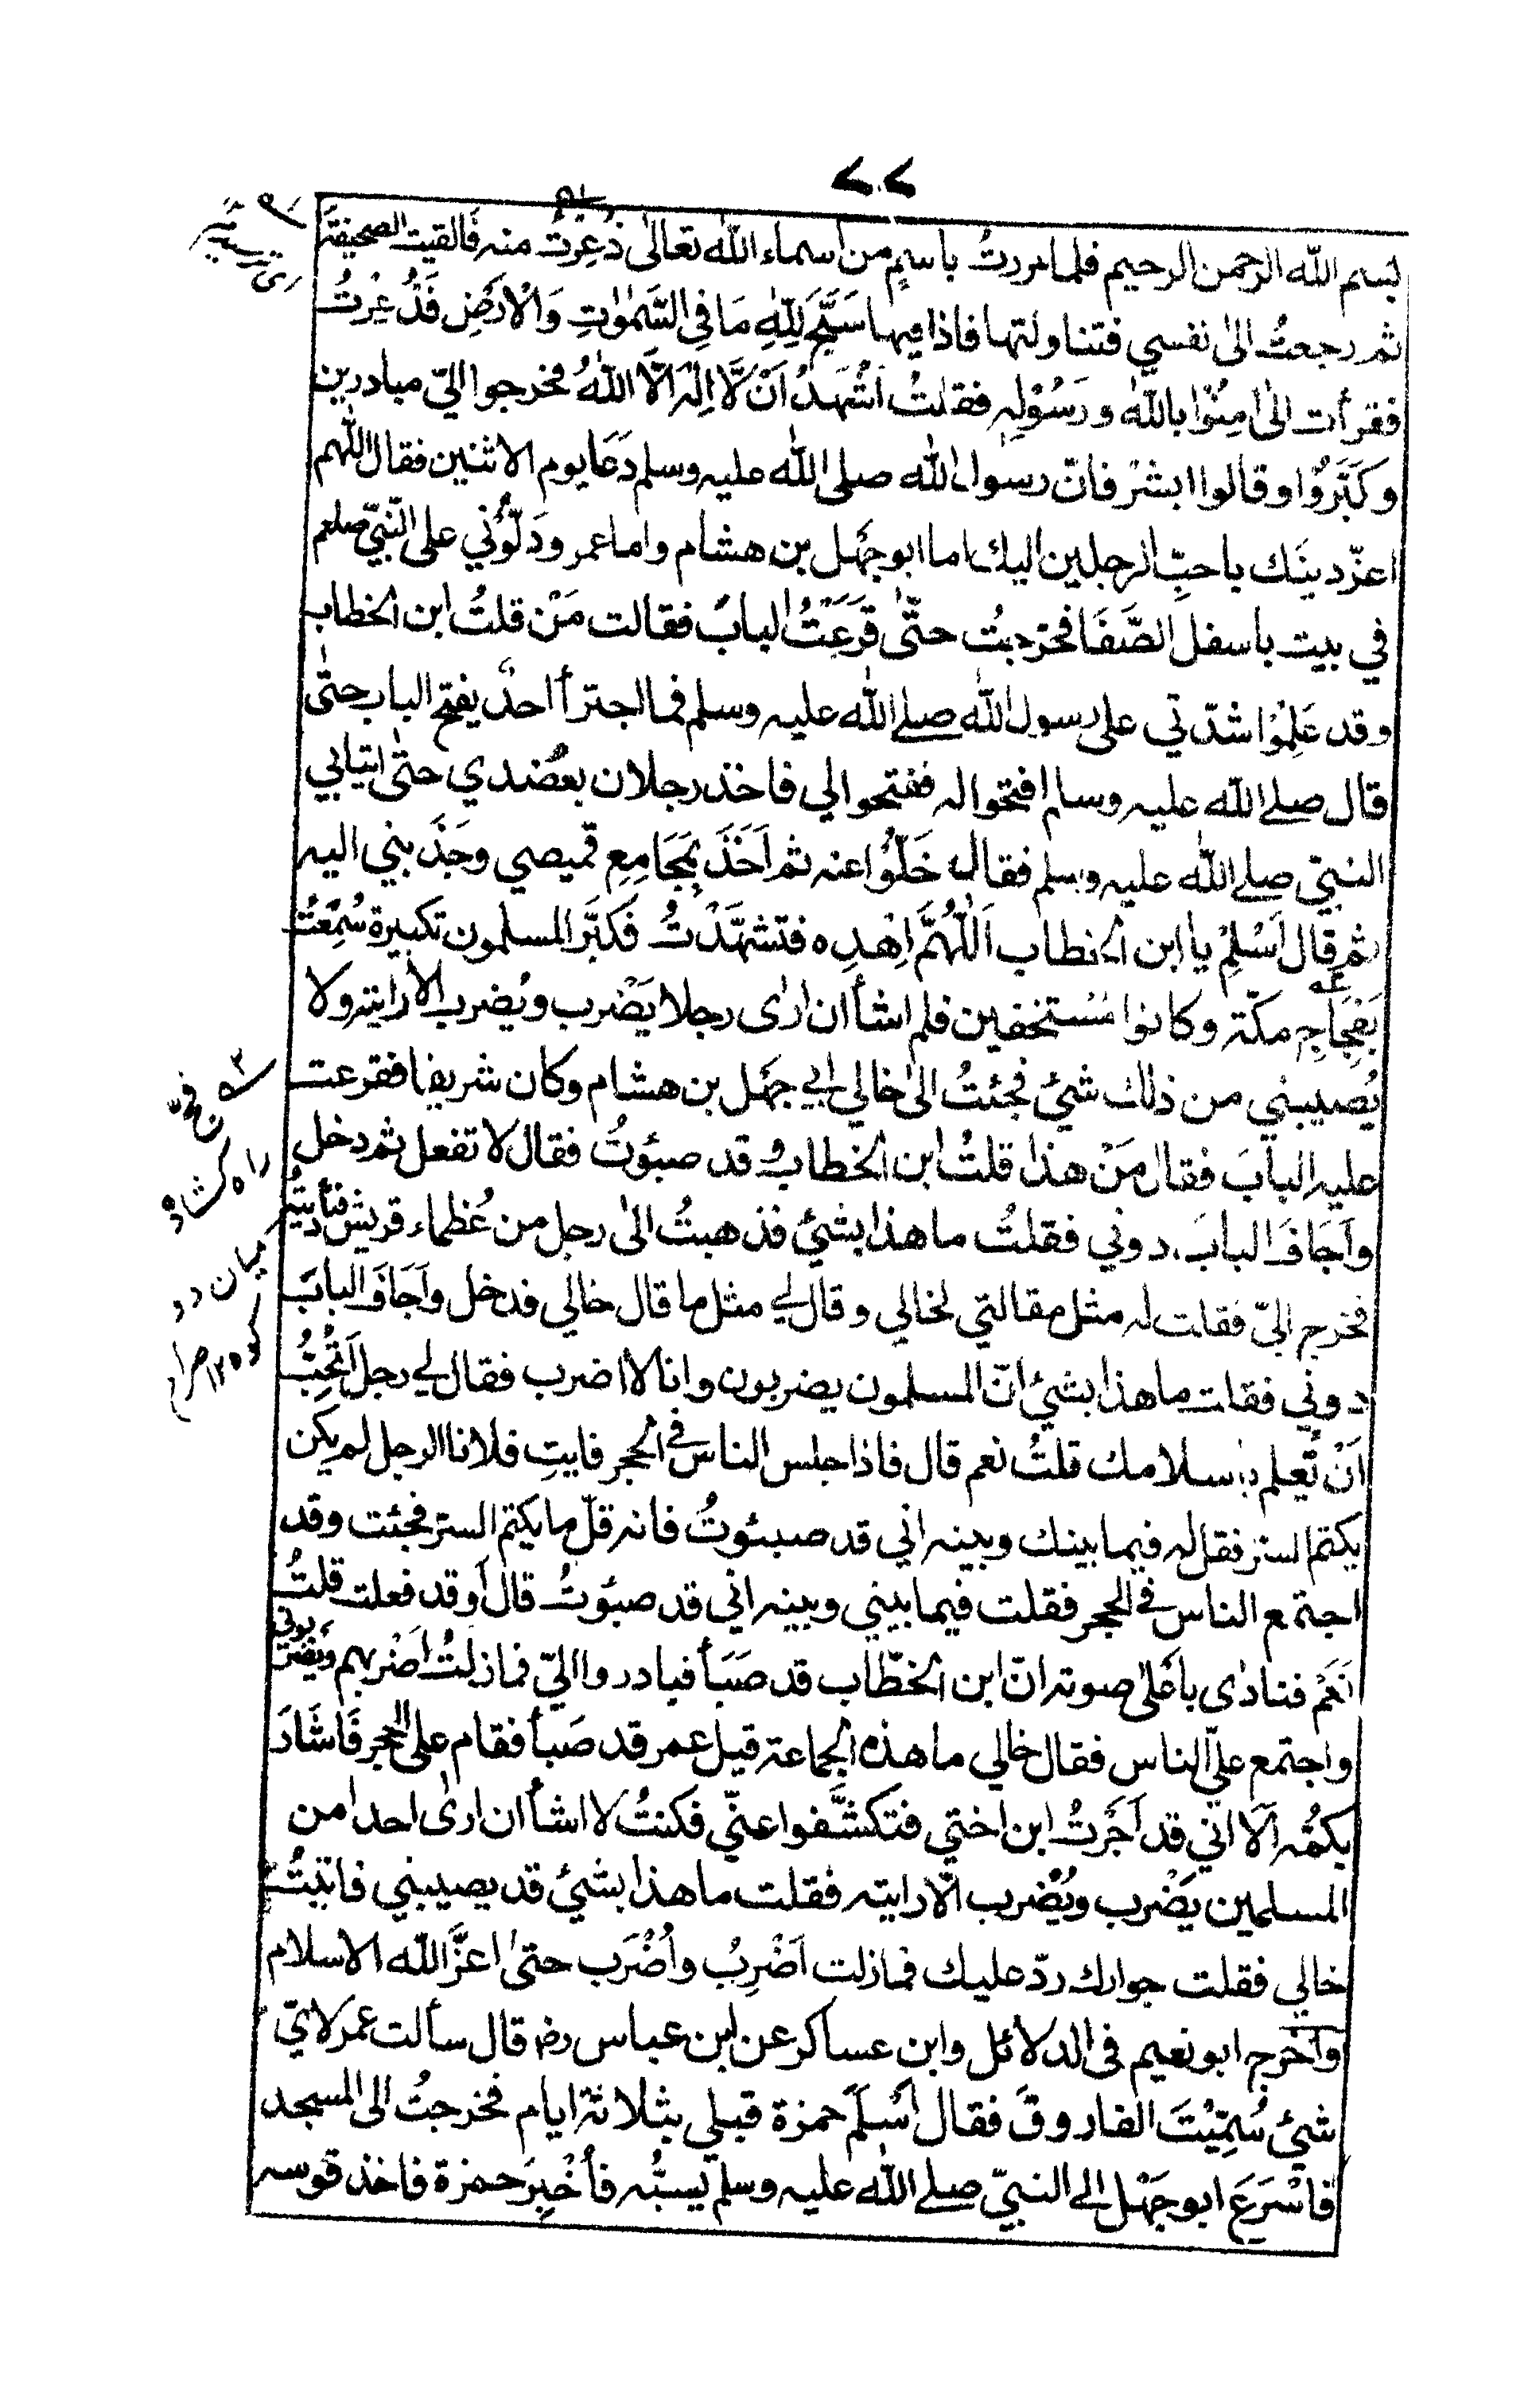 ٧٧
بسم الله الرحمن الرحيم فلما مررتُ باسمٍ من اسماء الله تعالىٰ ذُعِرتُ منه فَالقيت الصحيفة
ثم رجعتُ الىٰ نفسي فتناولتها فاذا فيها سَبَّحَ لِلّٰهِ مَا فِي السَّمٰوٰتِ وَالْاَرْضِ فَذُعِرْتُ
فقرأت الىٰ اٰمِنُوْا بِاللّٰهِ وَرَسُوْلِهٖ فقلتُ اَشْهَدُ اَنْ لَّا اِلٰهَ اِلَّا اللّٰهُ فخرجوا اليّ مبادرين
وكَبَّرُوْا وقالوا ابشرْ فانّ رسول الله صلى الله عليه وسلم دَعَا يوم الاثنين فقال اللّٰهم
اعزّ دينَك باحبِّ الرجلين اليك اما ابوجَهْل بن هشام واما عمر ودَلّوُني على النّبيّ صلعم
في بيت باسفل الصَّفَا فخرجتُ حتّىٰ قَرَعَتُ البابَ فقالت مَنْ قلتُ ابن الخطاب
وقد عَلِمُوْا شدّتي على رسول الله صلے الله عليه وسلم فما اجترأ احدٌ يفتح الباب حتّٰى
قال صلے الله عليه وسلم افتحوا له ففتحوا لي فاخذ رجلان بعضُدي حتّٰى اتيا بي
النبيّ صلے الله عليه وسلم فقال خَلّوُا عنه ثم اَخَذَ بِمَجَامِعِ قميصي وجَذَبني اليه
ثم قال اَسْلِمْ يا ابن الخطاب اَللّٰهُمَّ اِهْدِه فتشهَّدْتُ فَكبَّر المسلمون تكبيرة سُمِعَتْ
بَفِجَاجِ مكّة وكانوا مُسْتخفين فلم اشأ ان ارٰى رجلا يَضْرب ويُضرب الا رايته ولا
يُصيبني من ذلك شئ فجئتُ الىٰ خالي ابي جَهْل بن هشام وكان شريفا فقرعت
عليه البابَ فقال مَنْ هذا قلتُ ابن الخطاب وقد صبئوتُ فقال لا تفعل ثم دخل
واَجَافَ البابَ دوني فقلتُ ما هذا بشئ فذهبتُ الىٰ رجل من عُظماء قريش فناديتُه
فخرج اليّ فقلت له مثل مقالتي لخالي وقال لي مثل ما قال خالي فدخل واَجَافَ البابَ
دوني فقلت ما هذا بشئ انّ المسلمون يضربون وانا لا اضرب فقال لي رجل اَتُحِبُّ
اَنْ تُعلم باسلامك قلتُ نعم قال فاذا جلس الناس في الحجر فايتِ فلانا الرجل لم يكن
يكتم السرّ فقل له فيما بينك وبينه اني قد صبئوتُ فانه قلّ ما يكتم السرّ فجئت وقد
اجتمع الناس في الحجر فقلت فيما بيني وبينه اني قد صبئوتُ قال اَوقد فعلت قلتُ
نَعَمْ فنادٰى باَعْلىٰ صوته انّ ابن الخطّاب قد صَبَأ فبادروا اليّ فما زلتُ اَضْربهم ويَضْربوني
واجتمع عليّ الناس فقال خالي ما هذه الجماعة قيل عمر قد صَبأ فقام على الحجر فَاشَارَ
بكمّه اَلَا اني قد اَجَرتُ ابن اختي فتكشَّفوا عنّي فكنتُ لا اشأ ان ارىٰ احدا من
المسلمين يَضْرب ويُضْرب الّا رايته فقلت ما هذا بشئ قد يصيبني فاتيتُ
خالي فقلت جوارك ردّ عليك فما زلت اَضْرِبُ واُضْرَب حتىٰ اعزَّ الله الاسلام
واَخرج ابونعيم فى الدلائل وابن عساكر عن ابن عباس رض قال سألت عمر لايّ
شيئ سُمِّيْتَ الفاروقَ فقال اَسْلَمَ حمزة قبلي بثلاثة ايام فخرجتُ الى المسجد
فاَسْرَعَ ابوجَهْل الى النبيّ صلے الله عليه وسلم يَسبُّه فأُخْبِرَ حمزة فاخذ قوسه
راه كشاده
ميان دو
كوه ١٢ صراح